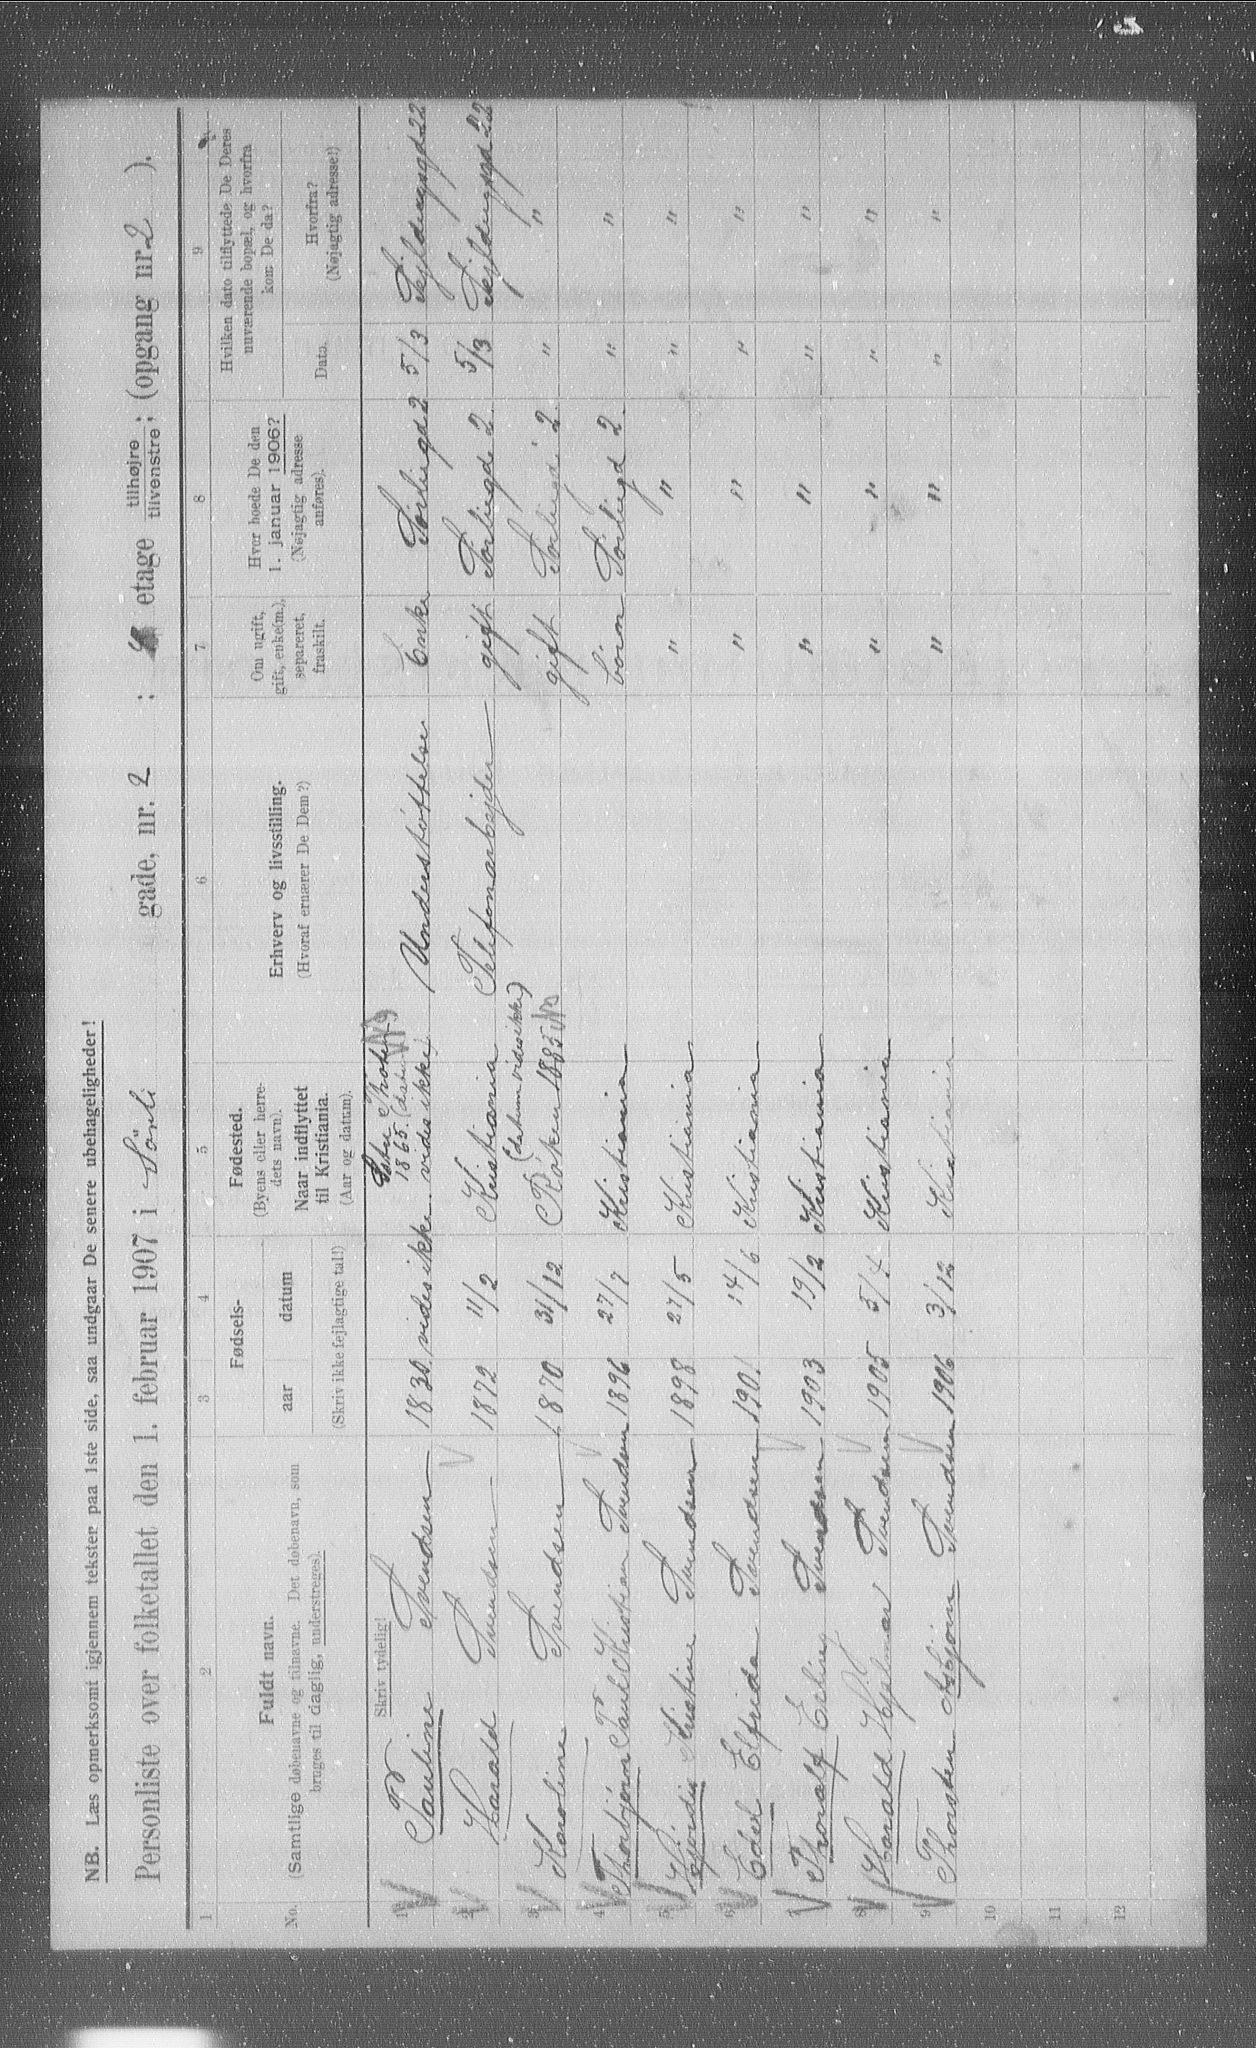 NB. Læs opmerksomt igjennem tekster paa 1ste side, saa undgaar De senere ubehageligheder!
Personliste over folketallet den 1. februar 1907 i Sörli gade, nr. 2 : etage tilhøjre tilvenstre; (opgang nr. 2 ).
1 2 3 4 5 6 7 8 9
No.
Fuldt navn.
(Samtlige døbenavne og tilnavne. Det døbenavn, som
bruges til daglig, understreges).
Fødsels-
aar datum
(Skriv ikke fejlagtige tal!)
Fødested.
(Byens eller herre-
dets navn).
Naar indflyttet
til Kristiania.
(Aar og datum).
Erhverv og livsstilling.
(Hvoraf ernærer De Dem?)
Om ugift,
gift, enke(m.),
separeret,
fraskilt.
Hvor boede De den
1. januar 1906?
(Nøjagtig adresse
anføres).
Hvilken dato tilflyttede De Deres
nuværende bopæl, og hvorfra
kom De da?
Dato.
Hvorfra?
(Nøjagtig adresse!)
Skriv tydelig!
1 Pauline Svendsen 1830 vides ikke 1865 (datum vides ikke) Understøttelse Enke Sörligd 2 5/3 Kjöldergsgd 22
2 Harald Svendsen 1872 11/2 Kristiania Telefonarbejder gift Sörligd 2 5/3
3 Karoline Svendsen 1870 31/12 Röken 1885 (datum vides ikke) gift Sörligd 2 " "
4 Thorbjörn Paul Kristian Svendsen 1896 27/7 Kristiania börn Sörligd 2 " "
5 Hjördis Kristine Svendsen 1898 27/5 Kristiania " " " "
6 Edel Elfrida Svendsen 1901 14/6 Kristiania " " " "
7 Thoralf Erling Svendsen 1903 19/2 Kristiania " " " "
8 Harald Hjalmar Svendsen 1905 5/4 Kristiania " " " "
9 Thorsten Asbjörn Svendsen 1906 3/12 Kristiania " " " "
10
11
12